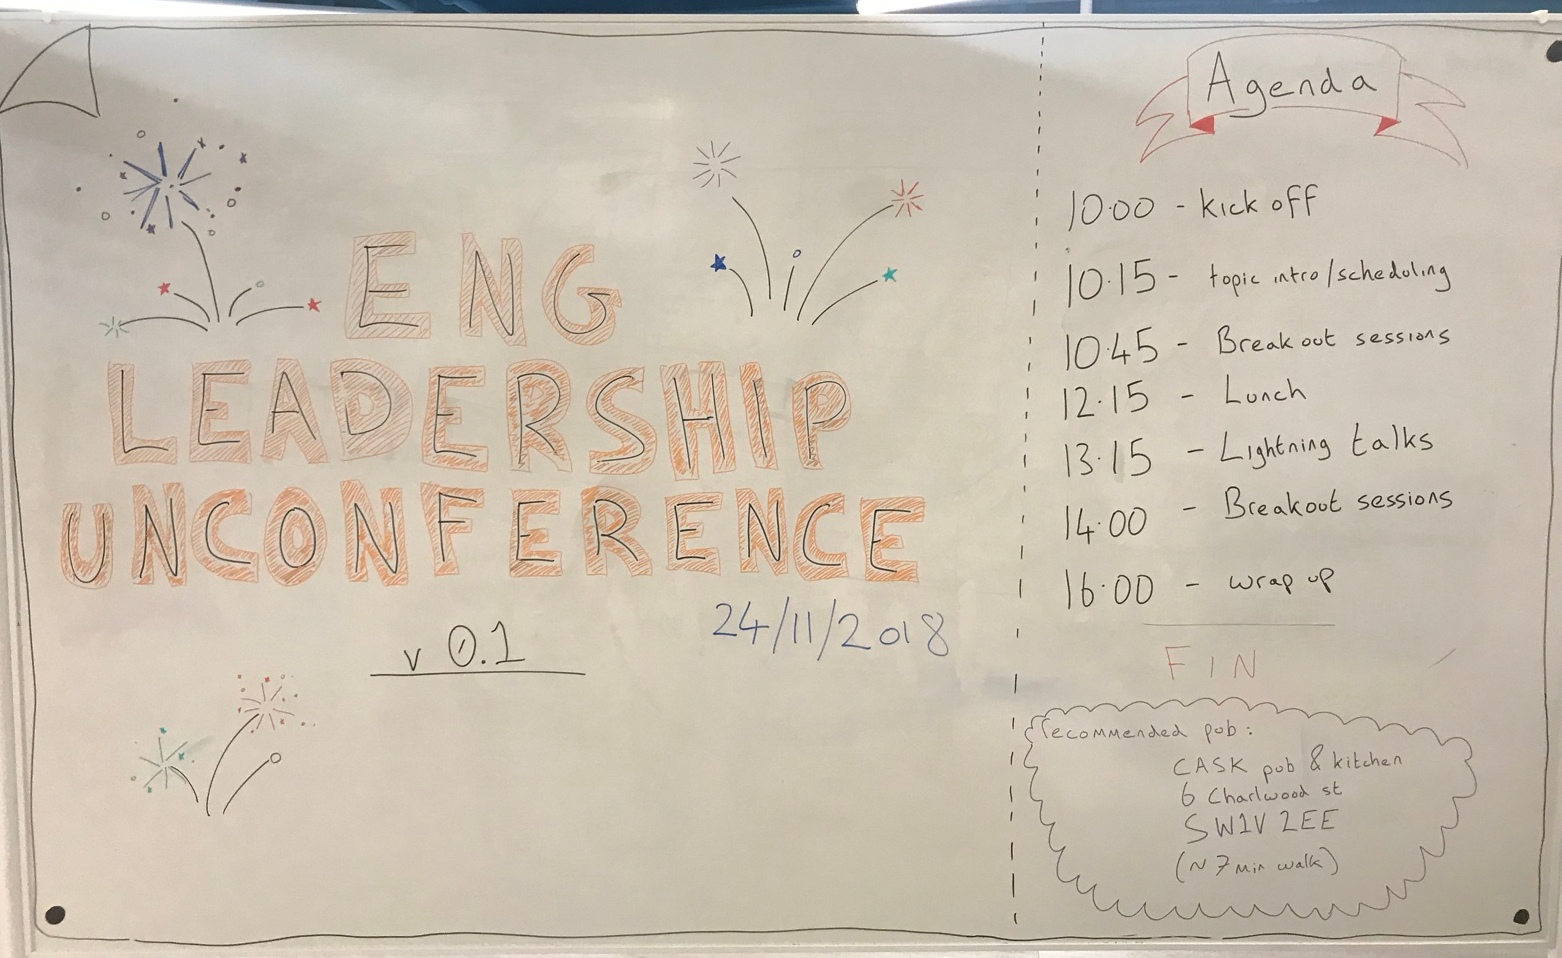 ENG
LEADERSHIP
UNCONFERENCE
v 0.1
24/11/2018
Agenda
10·00 - kick off
10·15 - topic intro/scheduling
10·45 - Breakout sessions
12·15 - Lunch
13·15 - Lightning talks
14·00 - Breakout sessions
16·00 - wrap up
FIN
recommended pub:
CASK pub & kitchen
6 Charlwood st
SW1V 2EE
(~ 7 min walk)